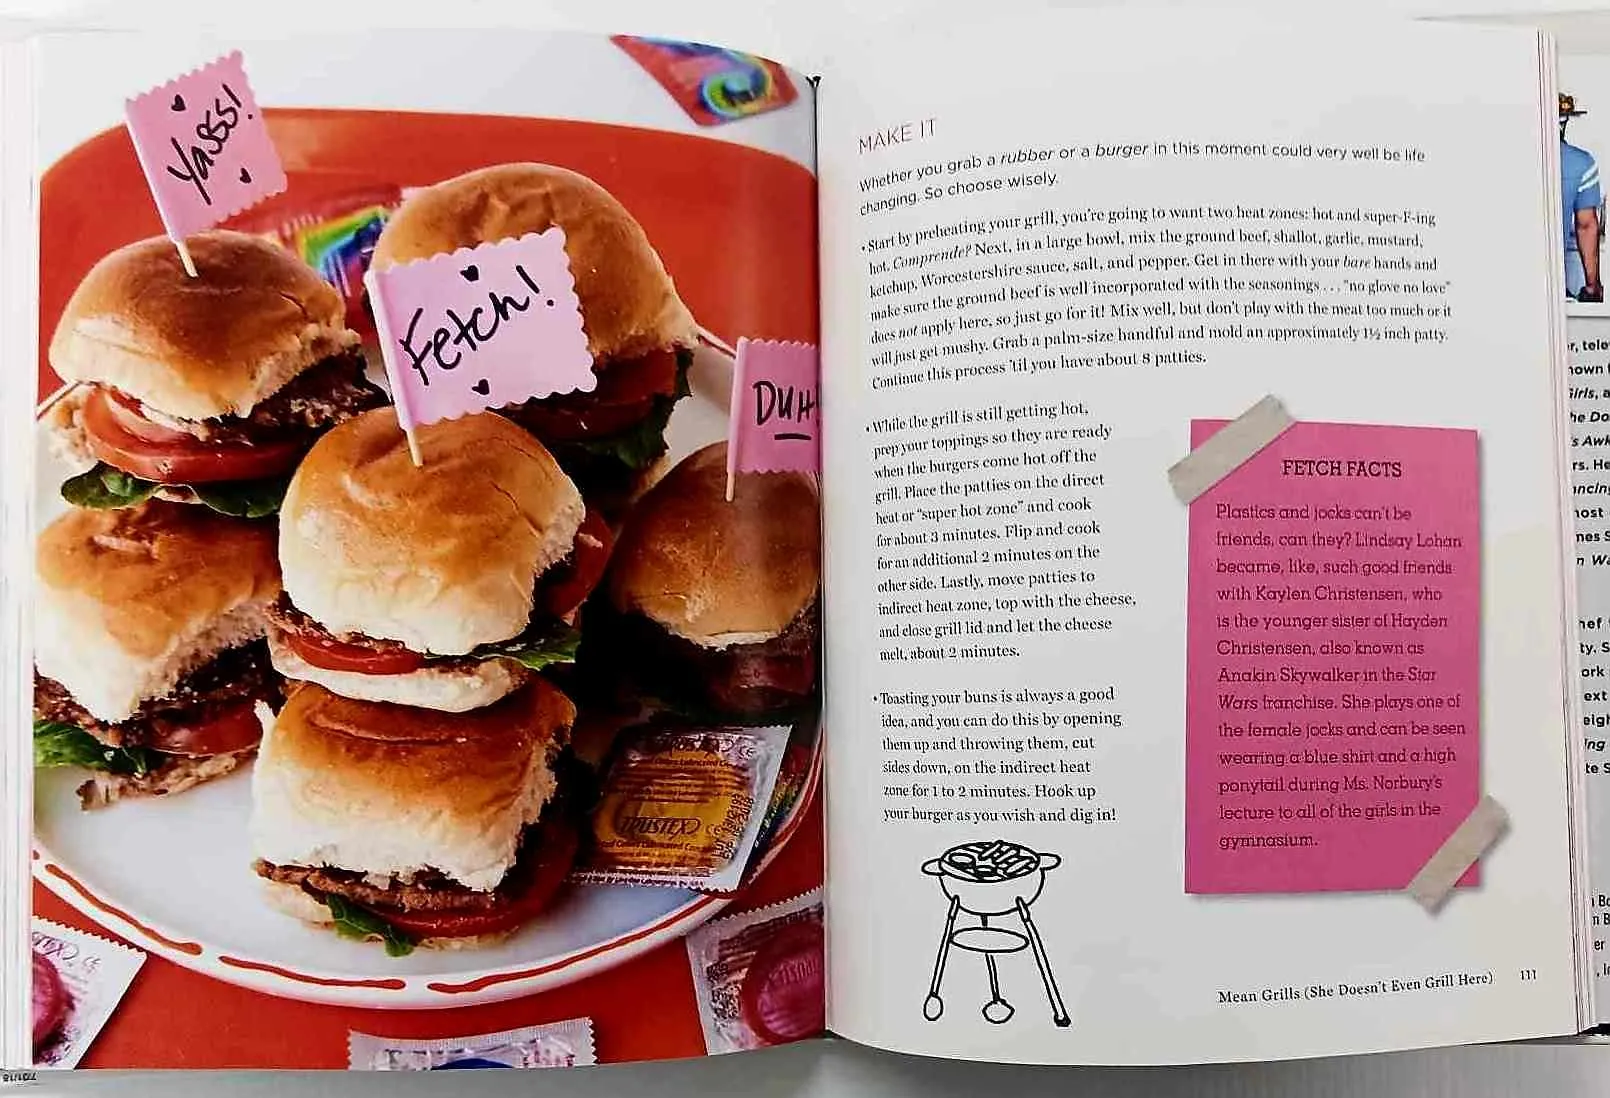 Yasss!
Fetch!
DUH!
TRUSTEX
MAKE IT
Whether you grab a rubber or a burger in this moment could very well be life
changing. So choose wisely.
• Start by preheating your grill, you're going to want two heat zones: hot and super-F-ing
hot. Comprende? Next, in a large bowl, mix the ground beef, shallot, garlic, mustard,
ketchup, Worcestershire sauce, salt, and pepper. Get in there with your bare hands and
make sure the ground beef is well incorporated with the seasonings . . . "no glove no love"
does not apply here, so just go for it! Mix well, but don't play with the meat too much or it
will just get mushy. Grab a palm-size handful and mold an approximately 1½ inch patty.
Continue this process 'til you have about 8 patties.
• While the grill is still getting hot,
prep your toppings so they are ready
when the burgers come hot off the
grill. Place the patties on the direct
heat or "super hot zone" and cook
for about 3 minutes. Flip and cook
for an additional 2 minutes on the
other side. Lastly, move patties to
indirect heat zone, top with the cheese,
and close grill lid and let the cheese
melt, about 2 minutes.
• Toasting your buns is always a good
idea, and you can do this by opening
them up and throwing them, cut
sides down, on the indirect heat
zone for 1 to 2 minutes. Hook up
your burger as you wish and dig in!
FETCH FACTS
Plastics and jocks can't be
friends, can they? Lindsay Lohan
became, like, such good friends
with Kaylen Christensen, who
is the younger sister of Hayden
Christensen, also known as
Anakin Skywalker in the Star
Wars franchise. She plays one of
the female jocks and can be seen
wearing a blue shirt and a high
ponytail during Ms. Norbury's
lecture to all of the girls in the
gymnasium.
Mean Grills (She Doesn't Even Grill Here) 111